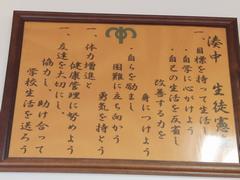 湊中 生徒憲章
一、目標を持って生活し
・自学に心がけよう
・自己の生活を反省し
改善する力を
身につけよう
・自らを励まし
困難に立ち向かう
勇気を持とう
一、体力増進と
健康管理に努めよう
一、友達を大切にし、
協力し、助け合って
学校生活を送ろう